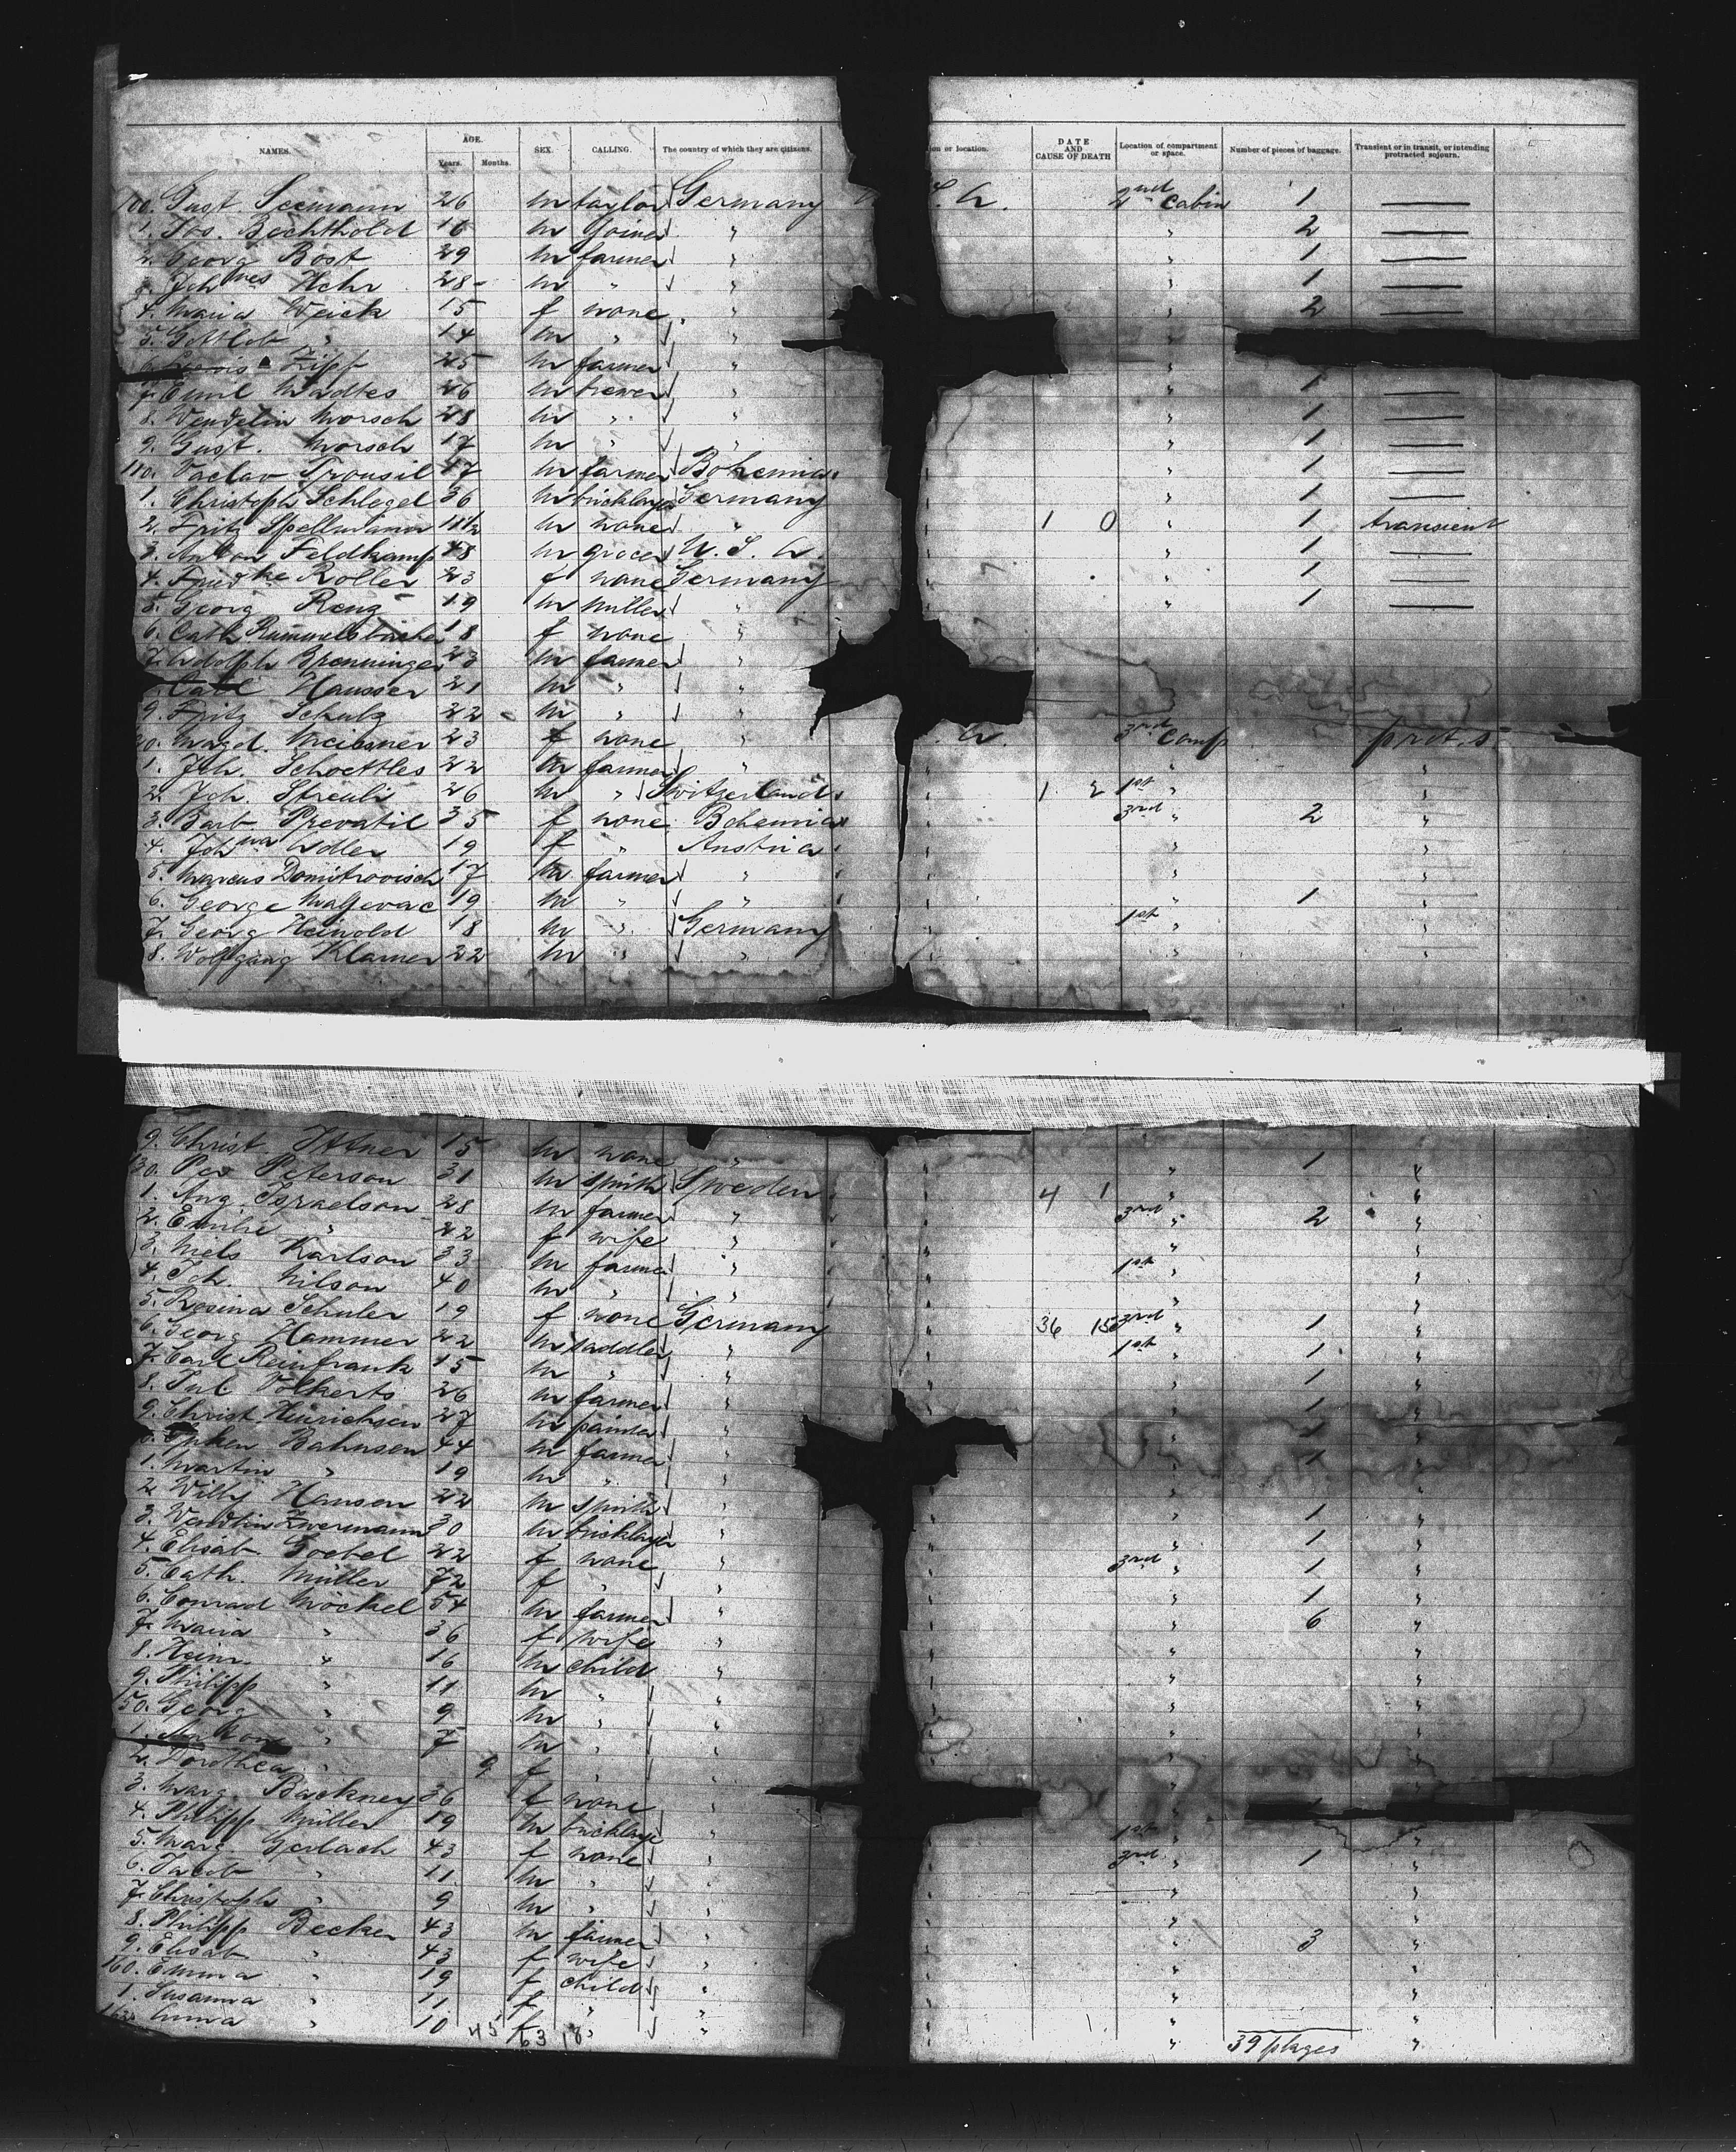 NAMES. AGE. Years. Months. SEX. CALLING. The country of which they are citizens. ion or location. DATE AND CAUSE OF DEATH Location of compartment or space. Number of pieces of baggage. Transient or in transit, or intending protracted sojourn.
100. Gust. Seemann 26 m taylor Germany S. A. 2nd Cabin 1 —
1. Jos. Bechthold 16 m joiner " " 2 —
2. Georg Bost 29 m farmer " " 1 —
3. Johnnes Hehr 28 m " " " 1 —
4. Maria Weick 15 f none " " 2 —
5. Gottlob " 14 m " " "
6. Zipf 25 m farmer " "
7. Emil 26 m brewer " " 1 —
8. Wendelin Morsch 28 m " " " 1 —
9. Gust. Morsch 17 m " " " 1 —
110. Vaclav Prousil 17 m farmer Bohemia " 1 —
1. Christoph Schlegel 36 m bricklayer Germany " 1 —
2. Fritz Spellmann 11½ m none " 1 0 " 1 transient
3. Anton Feldkamp 48 m grocer U. S. A. " 1 —
4. Friedke Roller 23 f none Germany " 1 —
5. Georg Renz 19 m miller " " 1 —
6. Cath. Rummelsbacher 18 f none "
7. Adolph Brenninger 23 m farmer "
Carl Hausser 21 m " "
9. Fritz Schulz 22 m " "
20. Magd. Meissner 23 f none " A. 3rd Comp prot. s.
1. Joh. Schoettles 22 m farmer " " " "
2. Joh. Streuli 26 m " Switzerland " 1 2 1st " "
3. Barb. Prevatil 35 f none Bohemia " 3rd " 2 "
4. Johna Adler 19 f " Austria " " "
5. Marcus Domitrovisch 17 m farmer " " " "
6. George 19 m " " " " 1 "
7. Georg Heinold 18 m " Germany " 1st " "
8. Wolfgang Klamer 22 m " " " " "
9. Christ. Ittner 15 m none " " " 1 "
130. Per Peterson 31 m smith Sweden " 4 1 " "
1. Aug. Israelson 28 m farmer " " 3rd " 2 "
2. Emilie " 22 f wife " " " "
3. Niels Karlson 33 m farmer " " 1st " "
4. Joh. Nilson 40 m " " " " "
5. Rosina Schuler 19 f none Germany " 36 15 3rd " 1 "
6. Georg Hammer 22 m saddler " " 1st " 1 "
7. Carl Reinfrank 15 m " " " " 1 "
8. Jul. Volkerts 26 m farmer " " " 1 "
9. Christ. Hinrichsen 27 m painter " "
Bahnsen 44 m farmer " 1 "
1. Martin " 19 m " " " "
2. Willy Hansen 22 m smith " " " 1 "
3. Wendlin Zwermann 30 m bricklayer " " " 1 "
4. Elisab. Goebel 22 f none " " 3rd " 1 "
5. Cath. Müller 72 f " " " " 1 "
6. Conrad Möckel 54 m farmer " " " 6 "
7. Maria " 36 f wife " " " "
8. Heinr. " 16 m child " " " "
9. Philipp " 11 m " " " " "
50. Georg " 9 m " " " " "
1. " 7 m " " " " "
2. Dorothea " 9 f " " "
3. Marg. Backney 36 f none "
4. Philipp Müller 19 m bricklayer " " 1st " "
5. Marg. Gerlach 43 f none " " 3rd " 1 "
6. Jacob " 11 m " " " " "
7. Christoph " 9 m " " " " "
8. Philipp Becker 43 m farmer " " " 3 "
9. Elisab. " 43 f wife " " " "
160. Emma " 19 f child " " " "
1. Susanna " 11 f " " " " "
162. Anna " 10 f " " " " "
45 63 18 39 pkges